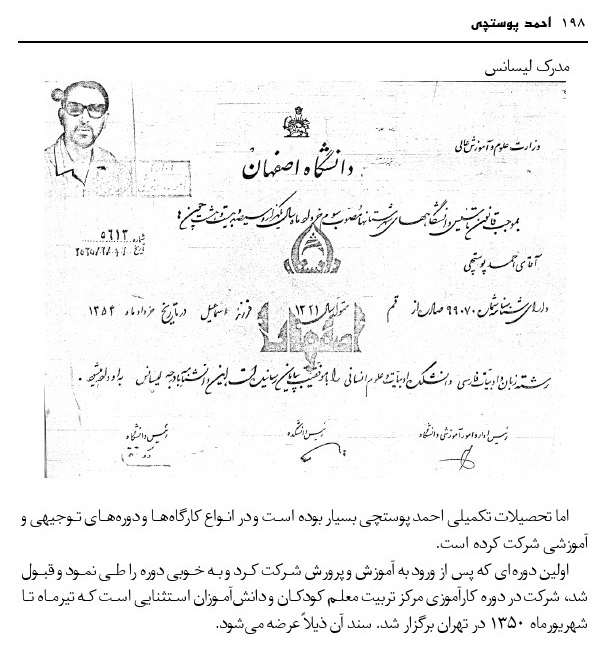 ۱۹۸ احمد پوستچی
مدرک لیسانس
وزارت علوم و آموزش عالی
دانشگاه اصفهان
بموجب قانون تأسیس دانشگاههای شهرستانها مصوب سوم خرداد ماه سال یکهزار و سیصد و بیست و هشت چون :
شماره ۵۶۱۳
تاریخ
آقای احمد پوستچی
دارای شناسنامه شماره ۹۹۰۷۰ صادره از قم متولد سال ۱۳۲۱ فرزند اسماعیل در تاریخ خرداد ماه ۱۳۵۴
رشته زبان و ادبیات فارسی دانشکده ادبیات و علوم انسانی را با موفقیت بپایان رسانیده است این دانشنامه با درجه لیسانس به او داده میشود .
رئیس اداره امور آموزشی دانشگاه رئیس دانشکده رئیس دانشگاه
اما تحصیلات تکمیلی احمد پوستچی بسیار بوده است و در انواع کارگاه‌ها و دوره‌های توجیهی و
آموزشی شرکت کرده است.
اولین دوره‌ای که پس از ورود به آموزش و پرورش شرکت کرد و به خوبی دوره را طی نمود و قبول
شد، شرکت در دوره کارآموزی مرکز تربیت معلم کودکان و دانش‌آموزان استثنایی است که تیرماه تا
شهریورماه ۱۳۵۰ در تهران برگزار شد. سند آن ذیلاً عرضه می‌شود.